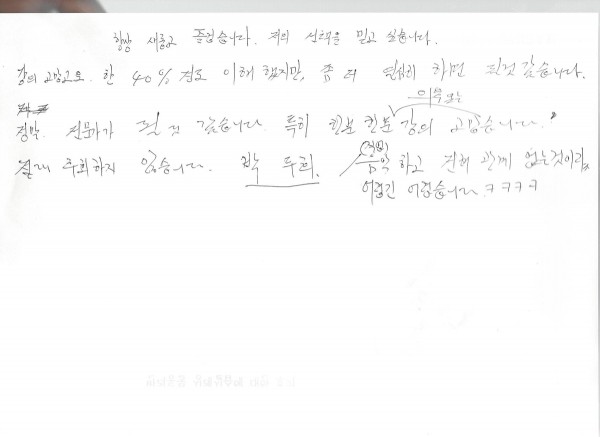 항상 새롭고 즐겁습니다. 저의 선택을 믿고 싶습니다.
강의 고맙고요. 한 40% 정도 이해 했지만, 좀 더 열심히 하면 될것 같습니다.
의욕 있는
정박. 전문가가 될 것 같습니다. 특히 한분 한분 강의 고맙습니다.
절대 후회하지 않습니다. 박 두희.
(직업)
음악 하고 전혀 관계 없는것이라
어렵긴 어렵습니다. ㅋㅋㅋㅋ